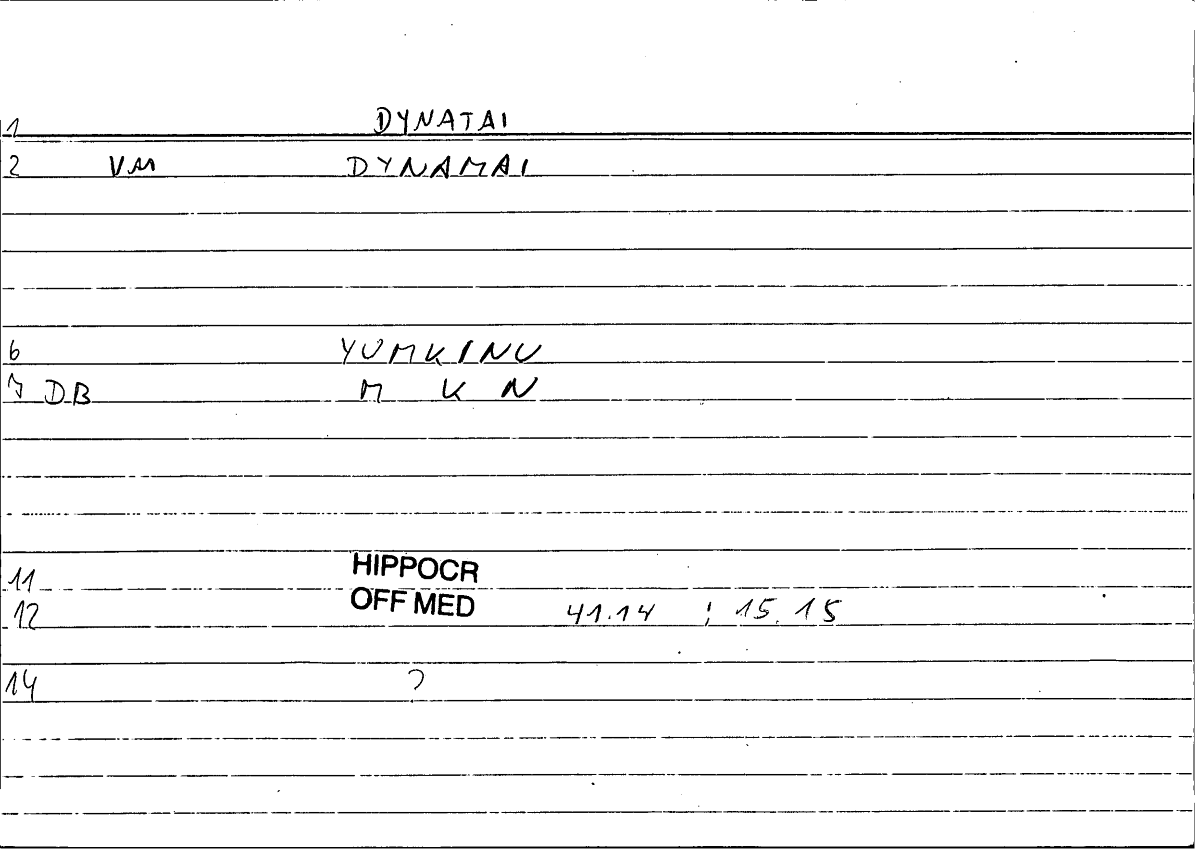 1 DYNATAI
2 VM DYNAMAI
6 YUMKINU
7 DB M K N
11 HIPPOCR
12 OFF MED 41.14 ; 15.15
14 ?